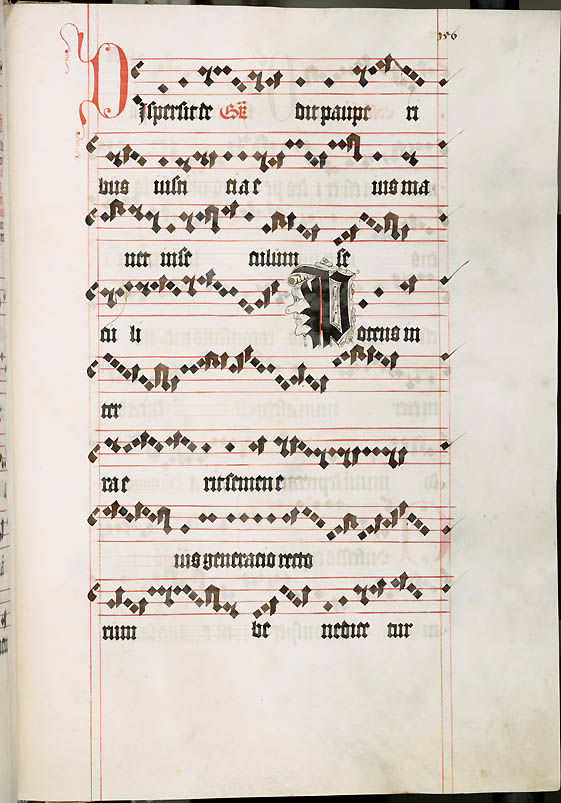 156
DIspersit de Gr̄ dit paupe ri
bus iusti cia e ius ma
net in se culum se
cu li Potens in
ter
ra e rit semen e
ius generatio recto
rum be nedice tur